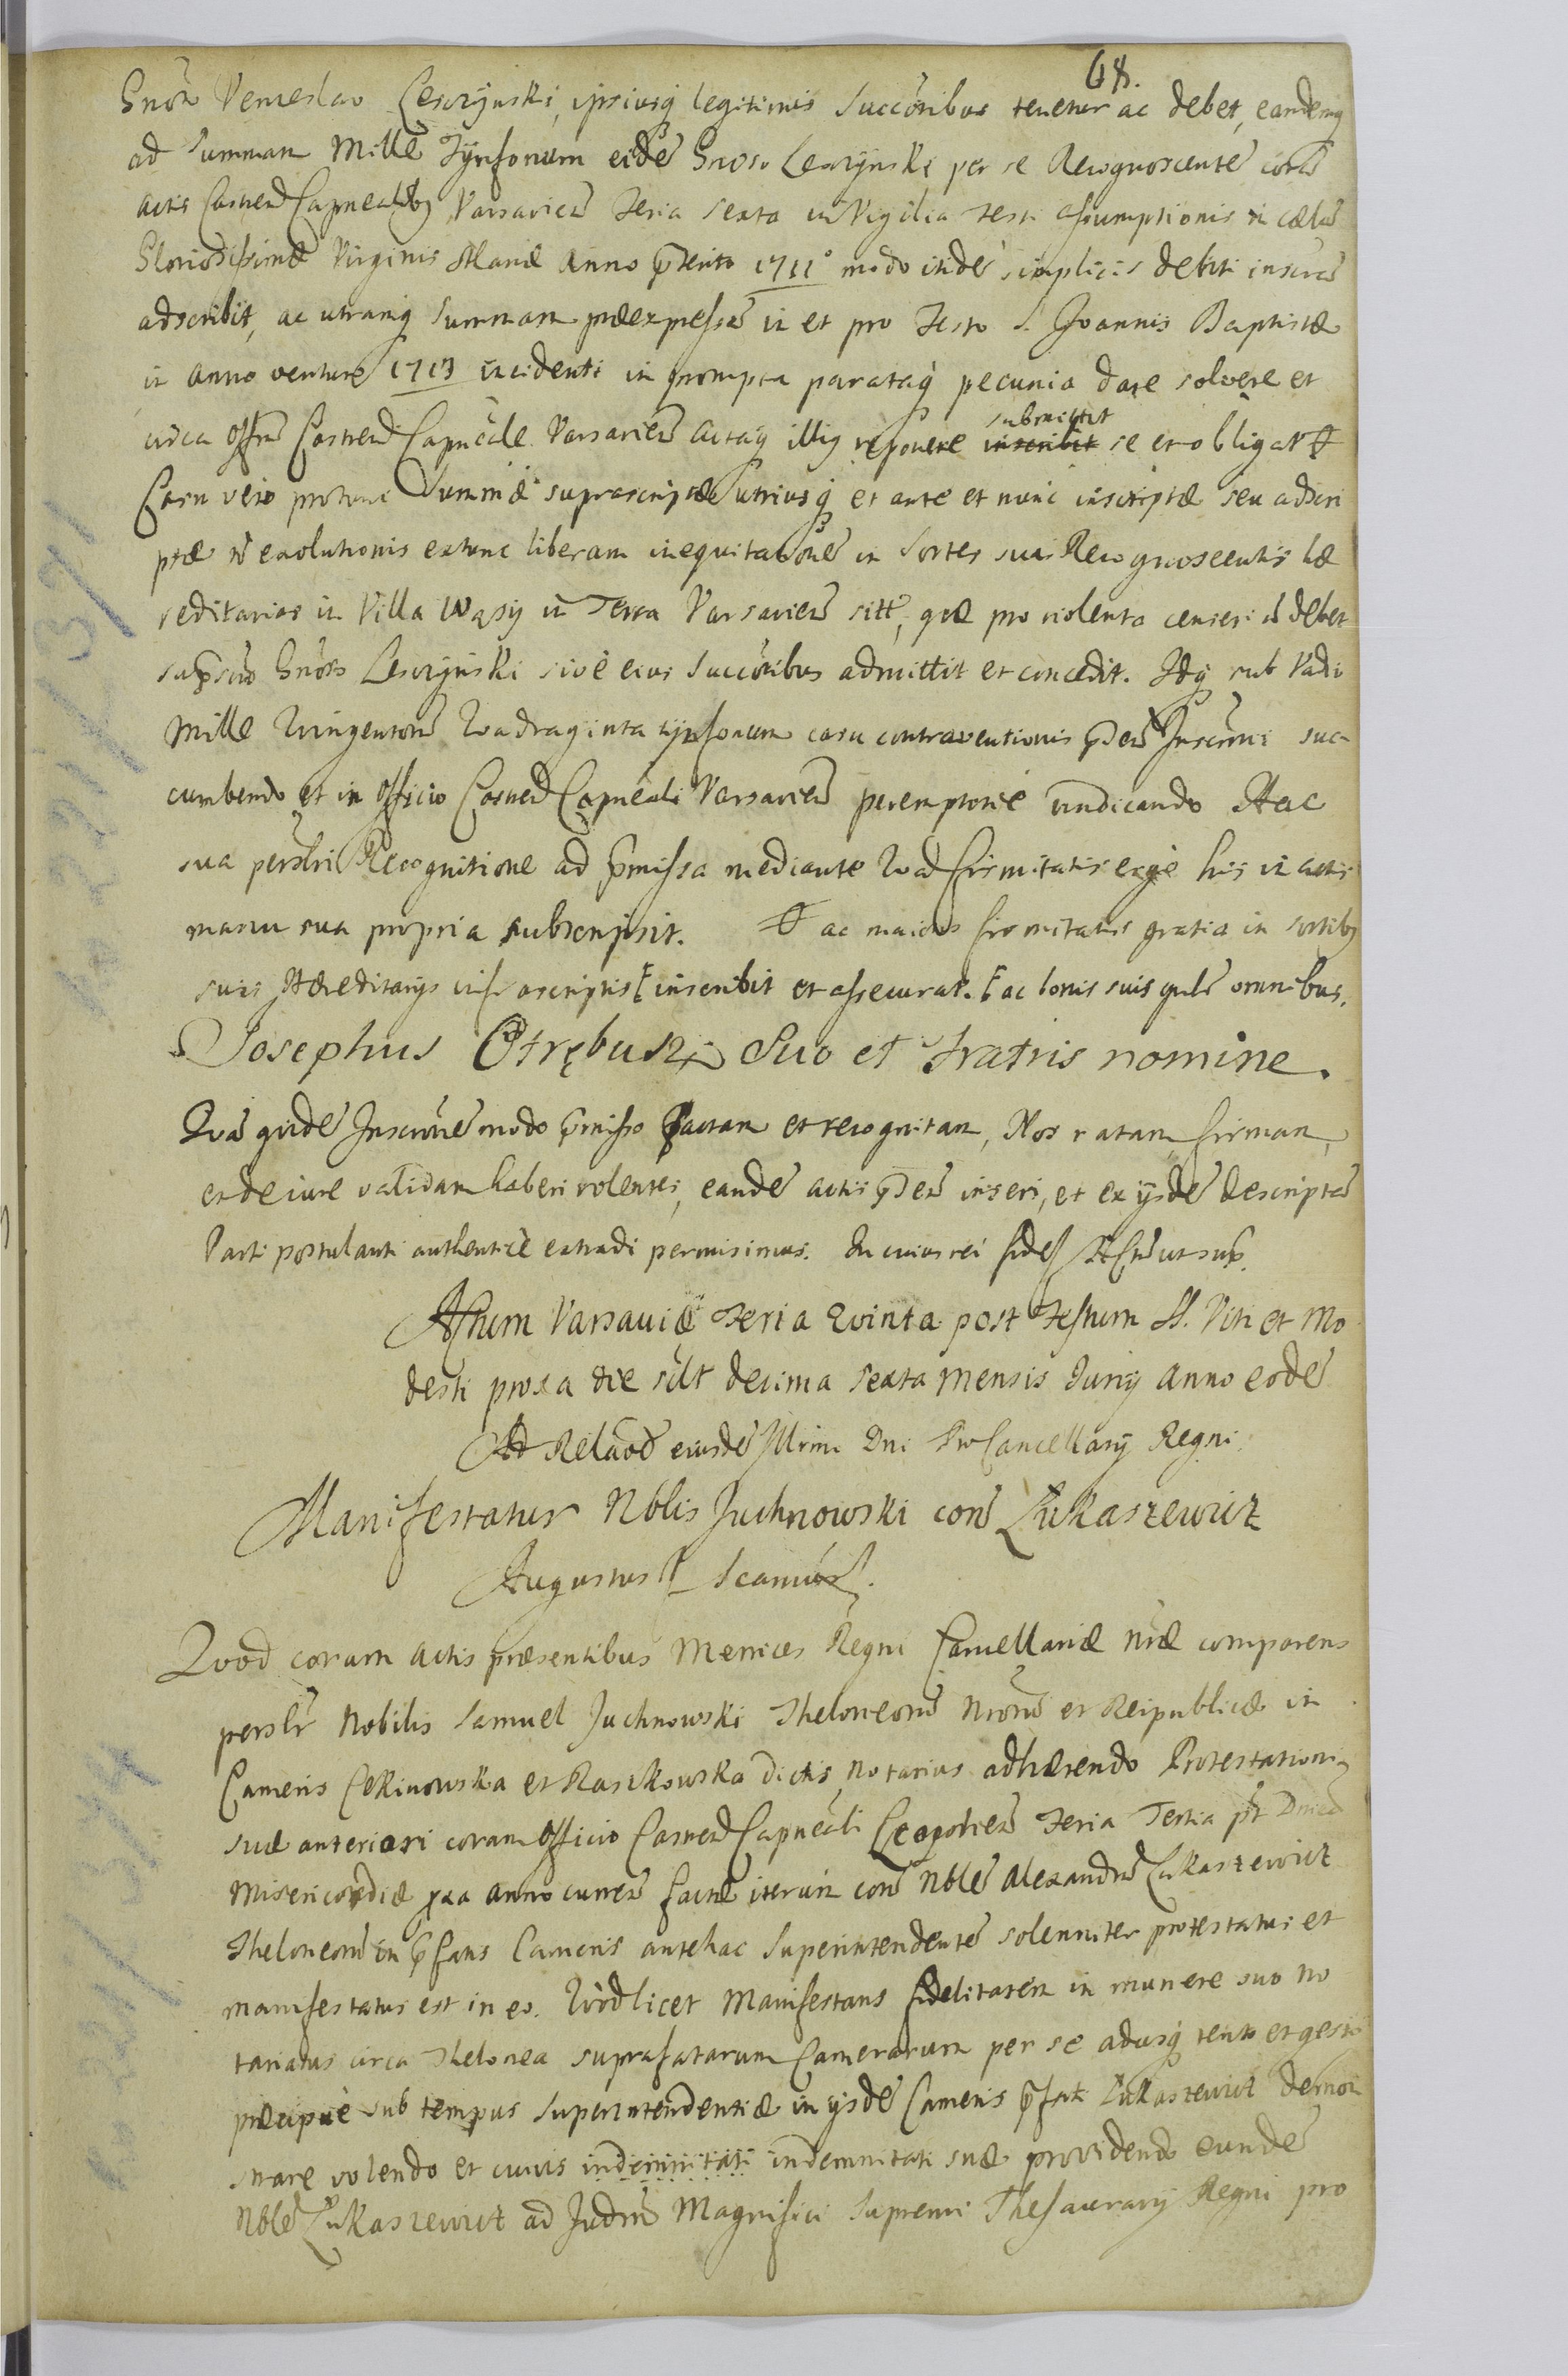 68.
Gnoso Venceslao Lesczynski, ipsiusq legitimis Succoribus tenetur ac debet, eandemq
ad Summam Mille Tynfonum eidē Gnoso Lesczynski per se Recognoscentē corā
actis Castren Capnealibq Varsavien Feria sexta in Vigilia Festi Assumptionis in cælū
Gloriosissimæ Virginis Mariæ Anno pterito 1711° modo itidē simplicis debiti inscrē
adscribit, ac utramq Summam præexpressā in et pro Festo S. Joannis Baptistæ
in Anno venturo 1713 incidenti in prompta parataq pecunia dare solvere et
circa Offm Castren Capneale Varsavien Actaq illiq reponere inscribit submittit se et obligat #
Casu vero protunc Summæ suprascriptæ utriusq et ante et nunc inscriptæ seu adscri
ptæ n exolutionis extunc liberam inequitationē in Sortes suas Recognoscentis hæ
reditarias in Villa Wąsy in Terra Varsavien sitt, quæ pro violenta censeri n debet
supscto Gnoso Lesczynski sive eius Succoribus admittit et concedit. Idq sub Vadio
Mille Quingentorū Quadraginta tynfonum casu contraventionis pnti Inscrōni suc
cumbendo et in Officio Castren Capneali Varsavien peremptorie vindicando Hac
sua personali Recognitione ad pmissa mediante Quod firmitatis ergo his in actis
manu sua propria subscripsit. # ac maioris firmitatis gratia in sortibq
suis Hæreditarijs infrascriptis [ inscribit et assecurat. [ ac bonis suis gnlr omnibus.
Josephus Otrębusz Suo et Fratris nomine.
Quā quidē Inscrōnē modo pmisso factam et recognitam, Nos ratam firmam,
et de iure validam haberi volentes, eandē actis pnti inseri, et ex ijsdē descriptā
Parti postulanti authenticè extradi permisimus. In cuius rei fidē Actū ut sup.
Actum Varsaviæ Feria Quinta post Festum SS. Viti et Mo
desti proxa die scilt decima sexta Mensis Junij Anno eodē
Ad Relaōē eiusdē Illrmi Dni ProCancellarij Regni.
Manifestatur Nblis Juchnowski con Łukaszewicz
Augustus
Quod coram Actis præsentibus Metrices Regni Cancellariæ Nræ comparens
persolr Nobilis Samuel Juchnowski Theloneorū Nrorū et Reipublicæ in
Cameris Cekinowska et Raszkowska dictis, Notarius adhærendo Protestationi
suæ anteriori coram Officio Castren Capneali Leopolien Feria Tertia pt Dnicā
Misericordiæ pxa Anno curren factæ iterum con Nblē Alexandrū Łukaszewicz
Theloneorū in pfatis Cameris antehac Superintendentē solenniter protestatus et
manifestatus est in eo. Quod licet Manifestans fidelitatem in munere suo No
tariatus circa Thelonea suprafatarum Camerarum per se adusq tento et gesto
præcipuè sub tempus Superintendentiæ in ijsdē Cameris pfati Łukaszewicz demon
strare volendo et cuius indemnitati indemnitati suæ providendo eundē
Nblē Łukaszewicz ad Judm Magnifici Supremi Thesaurarij Regni pro